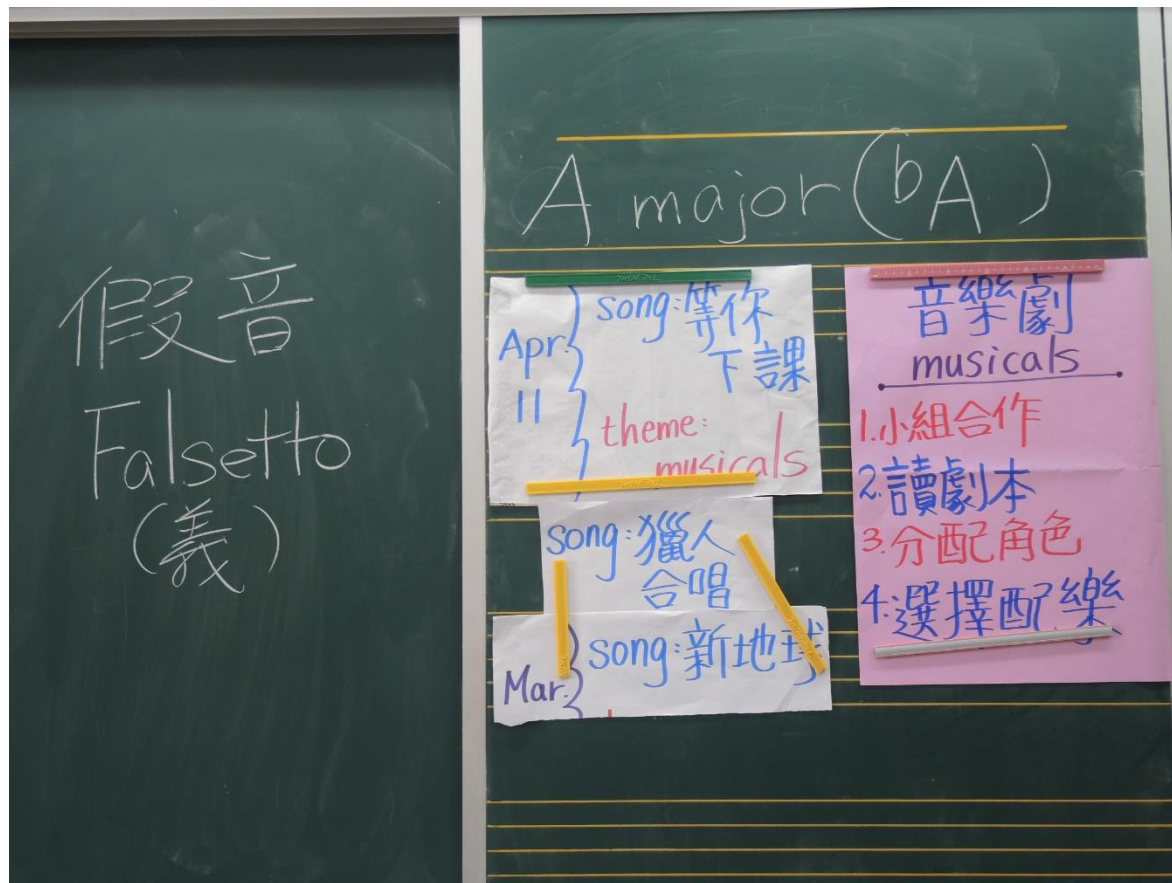 假音
Falsetto
(義)
A major (bA)
Apr.
11
song:等你
下課
theme:
musicals
song:獵人
合唱
Mar.
song:新地球
音樂劇
musicals
1.小組合作
2.讀劇本
3.分配角色
4.選擇配樂